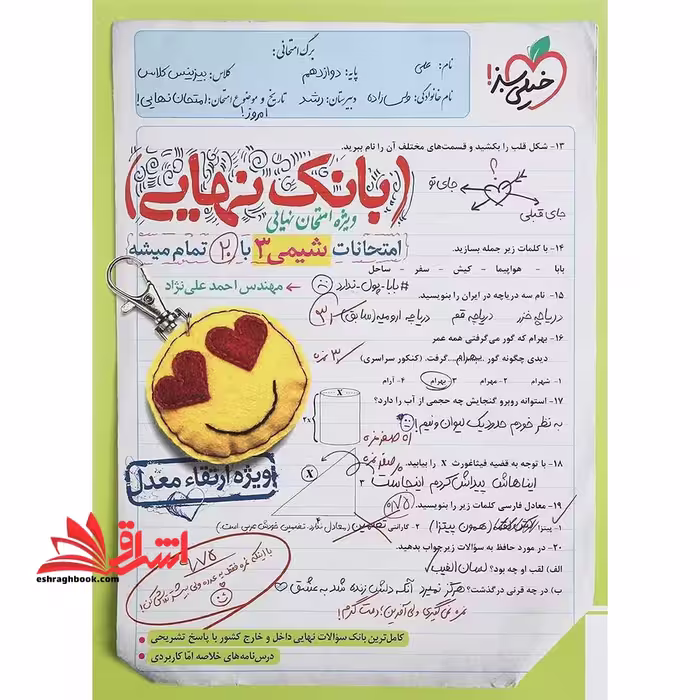 برگ امتحانی:
نام: علی
پایه: دوازدهم
کلاس: بیزینس کلاس
نام خانوادگی: ولی‌زاده
دبیرستان: رشد
تاریخ و موضوع امتحان: امتحان نهایی!
امروز!
خیلی سبز!
۱۳- شکل قلب را بکشید و قسمت‌های مختلف آن را نام ببرید.
؟
جای تو
جای قبلی
(بانک نهایی)
ویژه امتحان نهایی
امتحانات شیمی ۳ با ۲۰ تمام میشه
مهندس احمد علی‌نژاد
۱۴- با کلمات زیر جمله بسازید.
بابا - هواپیما - کیش - سفر - ساحل
#بابا_پول_ندارد
۱۵- نام سه دریاچه در ایران را بنویسید.
دریاچه خزر دریاچه قم دریاچه ارومیه (سابق)
۱۶- بهرام که گور می‌گرفتی همه عمر
دیدی چگونه گور بهرام گرفت. (کنکور سراسری)
۱- شهرام ۲- مهرام ۳- بهرام ۴- آرام
۱۷- استوانه روبرو گنجایش چه حجمی از آب را دارد؟
به نظر خودم حدود یک لیوان و نیم!
X
۲x
۱۸- با توجه به قضیه فیثاغورث X را بیابید.
صفر نمره
ایناهاش پیداش کردم اینجاست
X
۳
۴
۱۹- معادل فارسی کلمات زیر را بنویسید.
۰/۷۵
۱- پیتزا (همون پیتزا) ۲- گارانتی تضمین (معادل ندارد. تضمین خودش عربی است.)
۲۰- در مورد حافظ به سؤالات زیر جواب بدهید.
الف) لقب او چه بود؟ لسان الغیب
ب) در چه قرنی درگذشت؟ هرگز نمیرد آنکه دلش زنده شد به عشق
نمره نمی‌گیری ولی آفرین! دمت گرم!
ویژه ارتقاء معدل
اشراق
eshraghbook.com
کامل‌ترین بانک سؤالات نهایی داخل و خارج کشور با پاسخ تشریحی
درس‌نامه‌های خلاصه امّا کاربردی